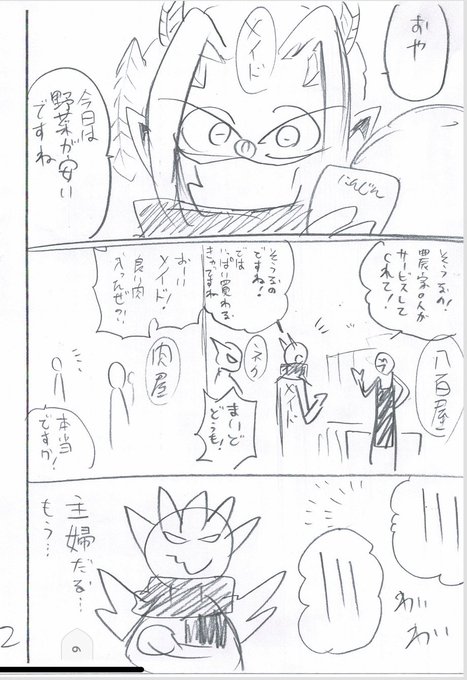 おや
メイド
今日は
野菜が安い
ですね
にんじん
八百屋
農家の人が
サービスして
くれて!
そうなの
ですね!
では
いっぱい買わな
きゃですね
メイド
まいど
どうも!
おーい
メイド!
良い肉
入ったぜ?!
肉屋
本当
ですか!
わい
わい
主婦だろ…
もう…
2